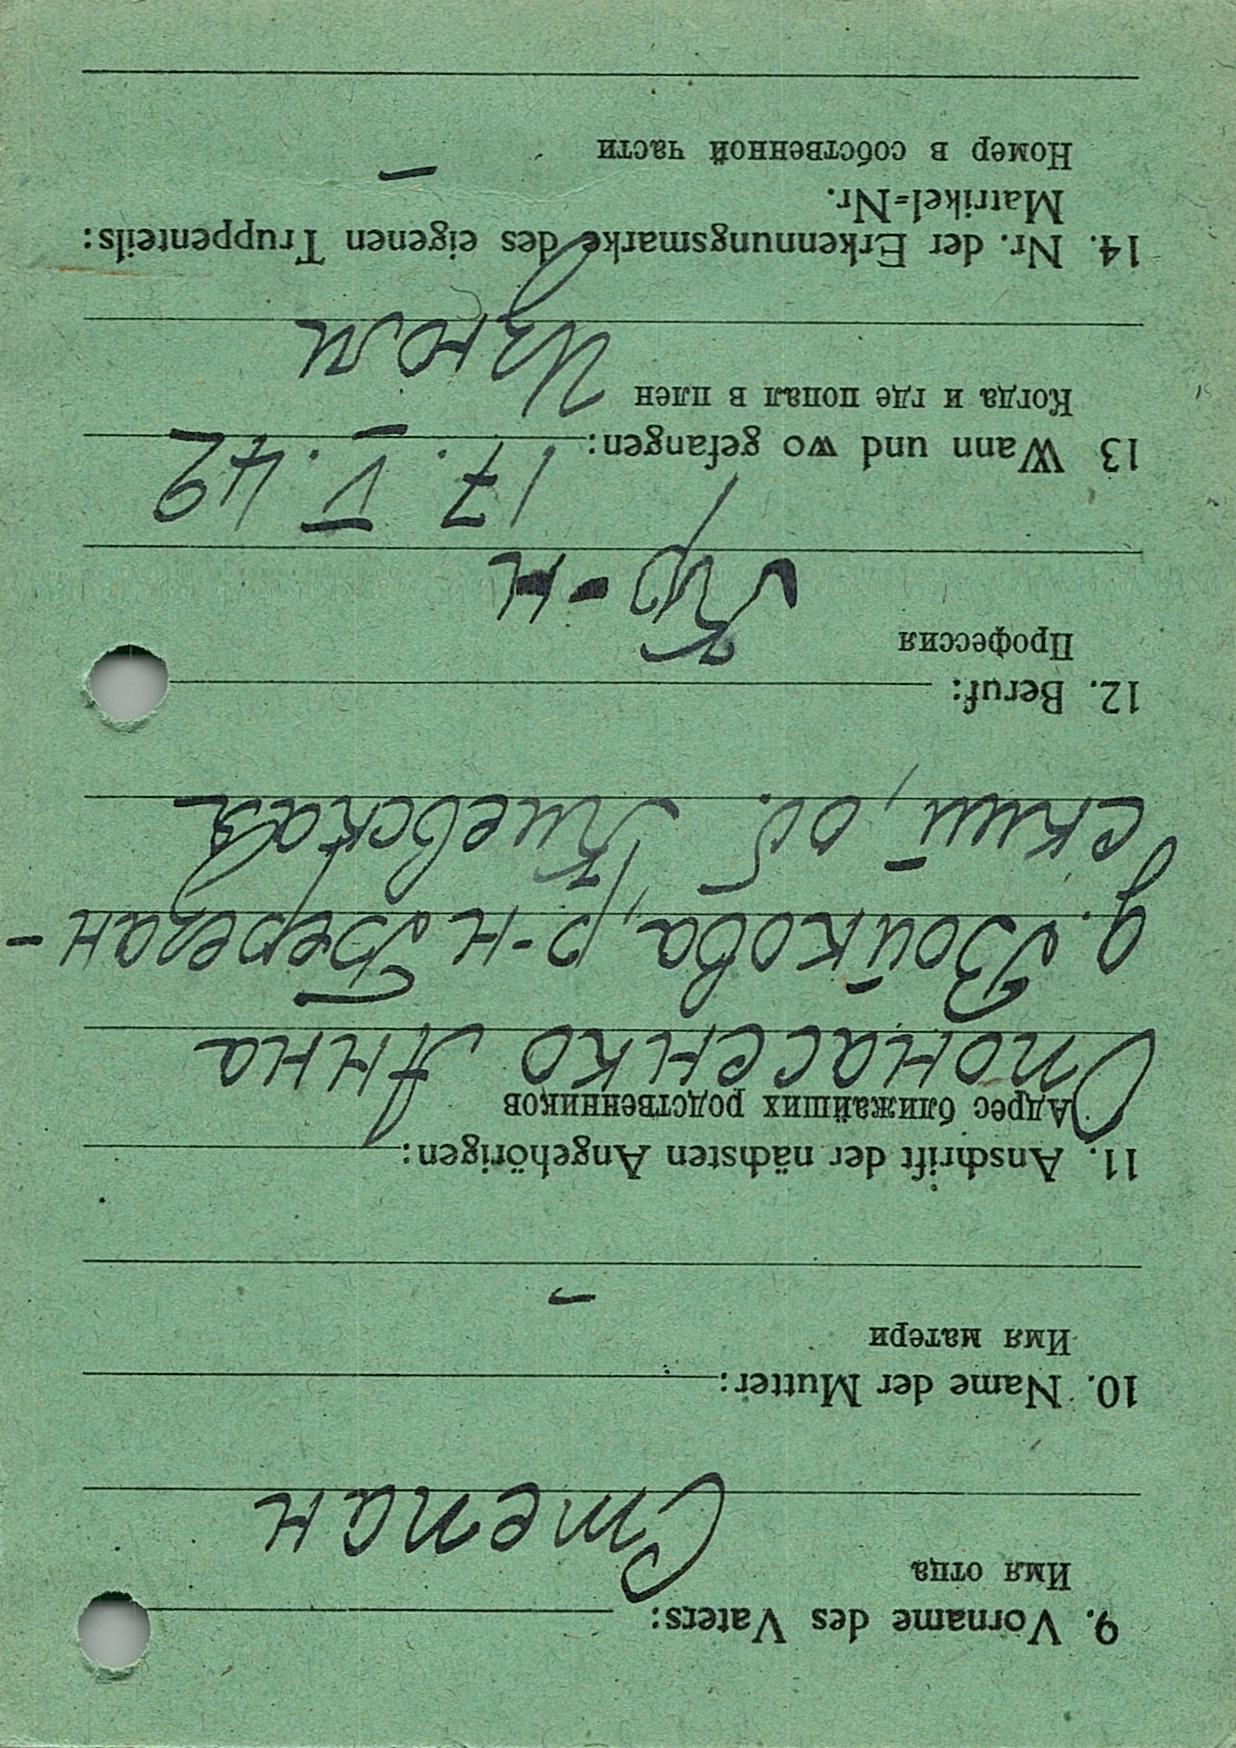 9. Vorname des Vaters:
Имя отца
Степан
10. Name der Mutter:
Имя матери
–
11. Anschrift der nächsten Angehörigen:
Адрес ближайших родственников
Опонасенко Анна
д. Войкова, р-н Березан-
ский, об. Киевская
12. Beruf:
Профессия
Кр-н
13 Wann und wo gefangen:
17. V. 42
Когда и где попал в плен
Изюм
14. Nr. der Erkennungsmarke des eigenen Truppenteils:
Matrikel=Nr.
Номер в собственной части
–